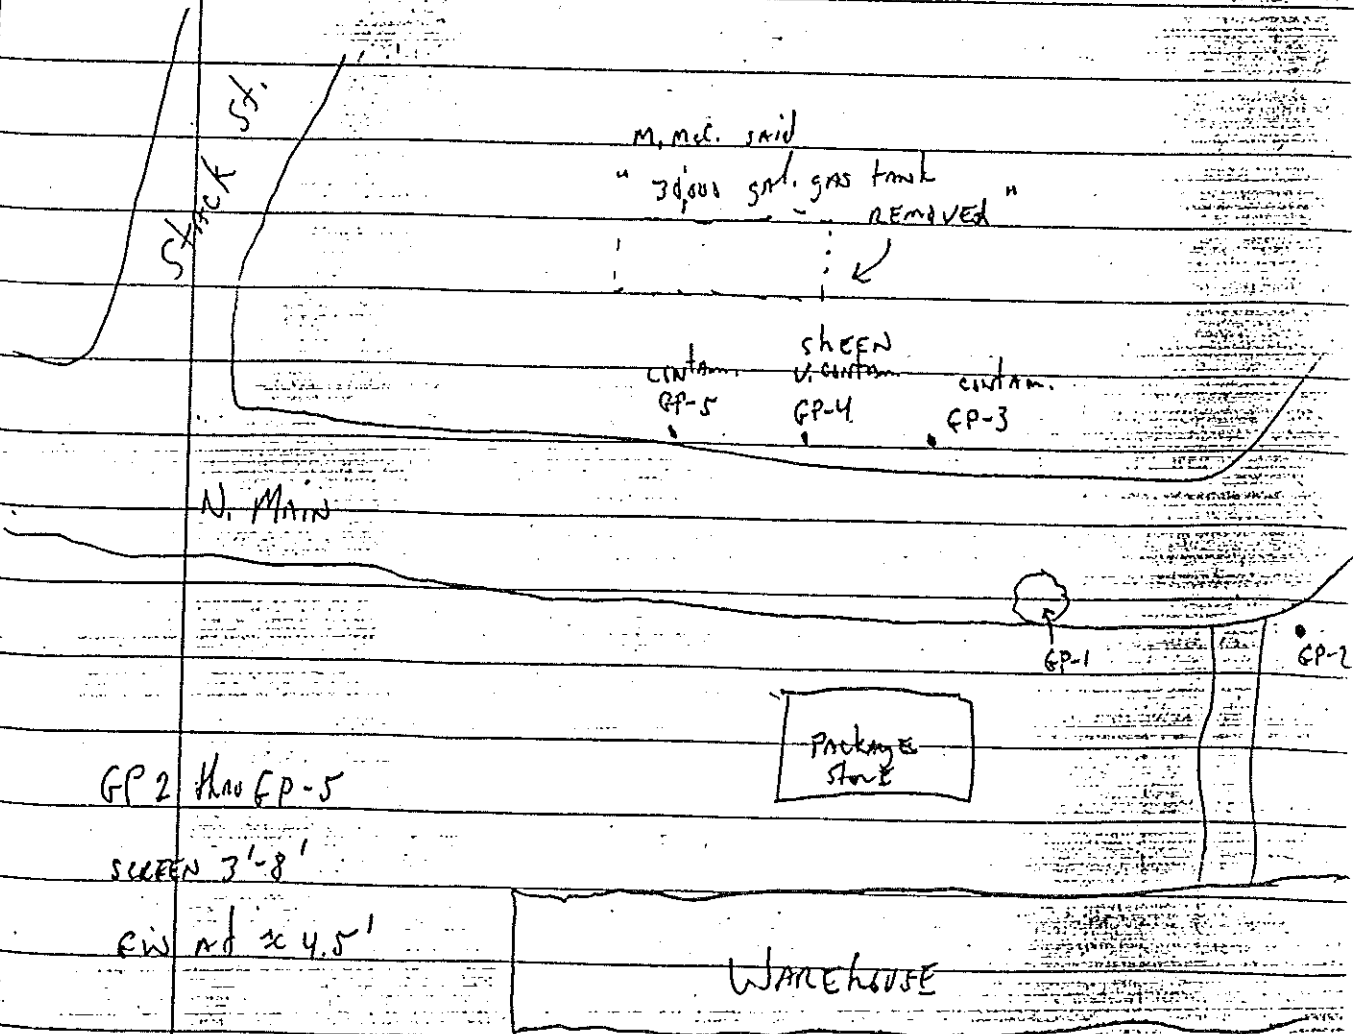 Stack St.
M. McC. said
" 30,000 gal. gas tank
REMOVED "
SHEEN
contam. V. contam. contam.
GP-5 GP-4 GP-3
N. MAIN
GP-1 GP-2
Package
Store
GP 2 thru GP-5
SCREEN 3'-8'
GW at ≈ 4.5'
WAREHOUSE